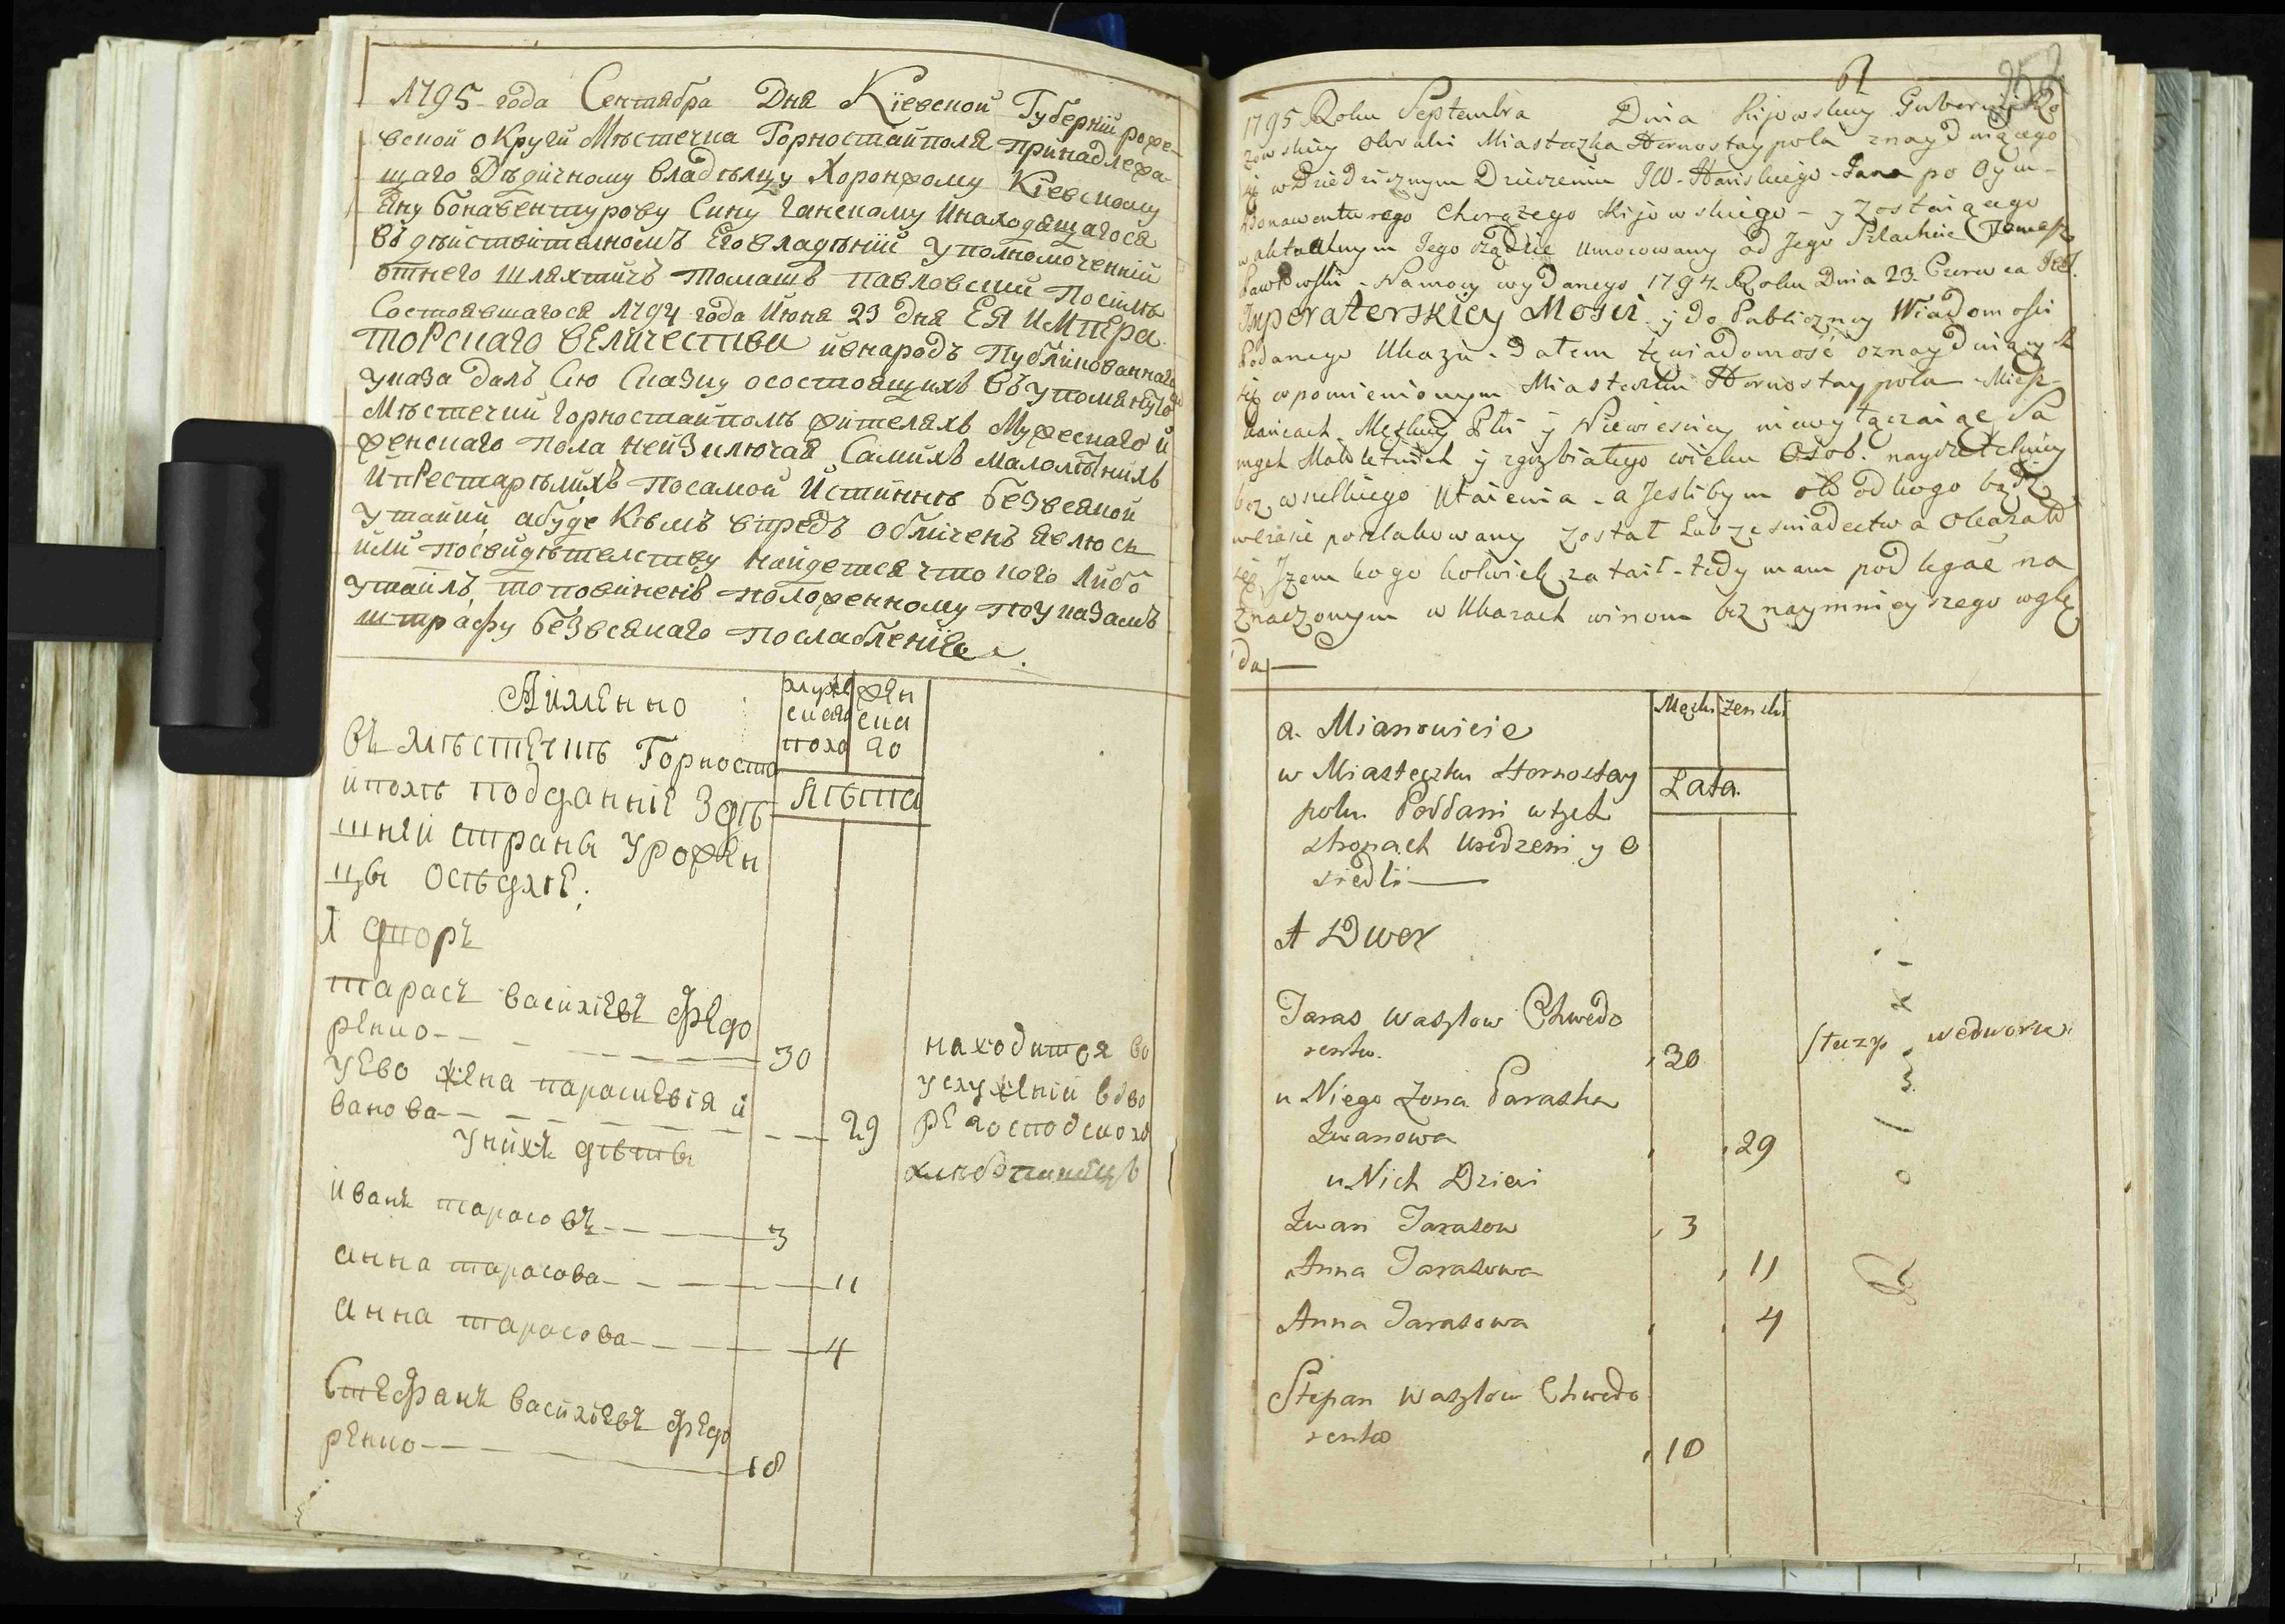 1795 года Сентября Дня Кїевской Губернїи роже-
вской округи Мѣстечка Горностайполя принадлежа-
щаго Дѣдичному владѣлцу Хоронжому Кїевскому
Яну бонавентурову Сину Ганскому Инаходящагося
въ дѣйствителномъ Его владѣнїи уполномоченнїй
отнего шляхтичъ томашъ павловский посилѣ
Состоявшагося 1794 года Июня 23 дня ЕЯ ИМПЕРА
ТОРСКАГО ВЕЛИЧЕСТВА ивнародъ Публїкованнаго
указа далъ Сию Сказку осостоящихъ въупомянутомъ
Мѣстечкѣ Горностайполѣ жителяхъ Мужескаго и
женскаго пола неизключая Самихъ малолѣтнихъ
ипрестарѣлихъ посамой истиннѣ безвсякой
утайки, абуде кѣмъ впредъ обличенъ явлюсь
или посвидѣтелству найдется что кого либо
утаилъ, то повиненъ положенному поуказамъ
штрафу безвсякаго послаблениїя.
Аимѣнно
мужескаго пола
женскаго
Лѣта
Въ мѣстечкѣ Горноста
йполѣ подданнїе здѣ
шней страны урожен
цы осѣдлїе.
1 дворъ
тарасъ василїевъ федо
ренко 30
уево жена параскевїя и
ванова 29
унихъ дѣты
находится во
услуженїи вдво
ре господском
хлѣбопашецъ
иванъ тарасовъ 3
анна тарасова 11
анна тарасова 4
Стефанъ василїевъ федо
ренко 18
1795 Roku Septembra Dnia Kijowskiey Gubernij Ro
zowskiey okruhi Miasteczka Hornostaypola znayduiącego
się w Dziedzicznym Dzierzeniu JW. Hanskiego Jana po Oycu
Bonawenturego Chorążego Kijowskiego y zostaiącego
w aktualnym Jego rządzie umocowany od Jego Szlachcic Tomasz
Pawłowski. Na mocy wydanego 1794. Roku Dnia 23. Czerwca JeJ.
Imperaterskiey Mości y do Publiczney Wiadomości
Podanego Ukazu. Dałem tę wiadomość oznayduiących
się wpomienionym Miasteczku Hornostaypolu Miesz-
kańcach Męskiey Płci y Niewiesciey niewyłączaiąc Sa
mych Małoletnich y zgrzybiałego wieku Osob. nayrzetelniey
bez wszelkiego Utaienia. a Jeslibym od kogo bądz
wczasie poszlakowany został Lub ze swiadectwa Okazało
się Izem kogo kolwiek zataił. tedy mam podlegać na
znaczonym w Ukazach winom bez naymnieyszego wzglę
du
a. Mianowicie
Męski żenski
Lata.
w Miasteczku Hornostay
polu Poddani wtych
stronach urodzeni y o
siedli
A Dwor
Taras Waszlow Chwedo
renko. 30
u Niego Żona Paraska
Iwanowa 29
Służy wedworu
u Nich Dzieci
Iwan Tarasow 3
Anna Tarasowa 11
Anna Tarasowa 4
Stepan Waszlow Chwedo
renko 10